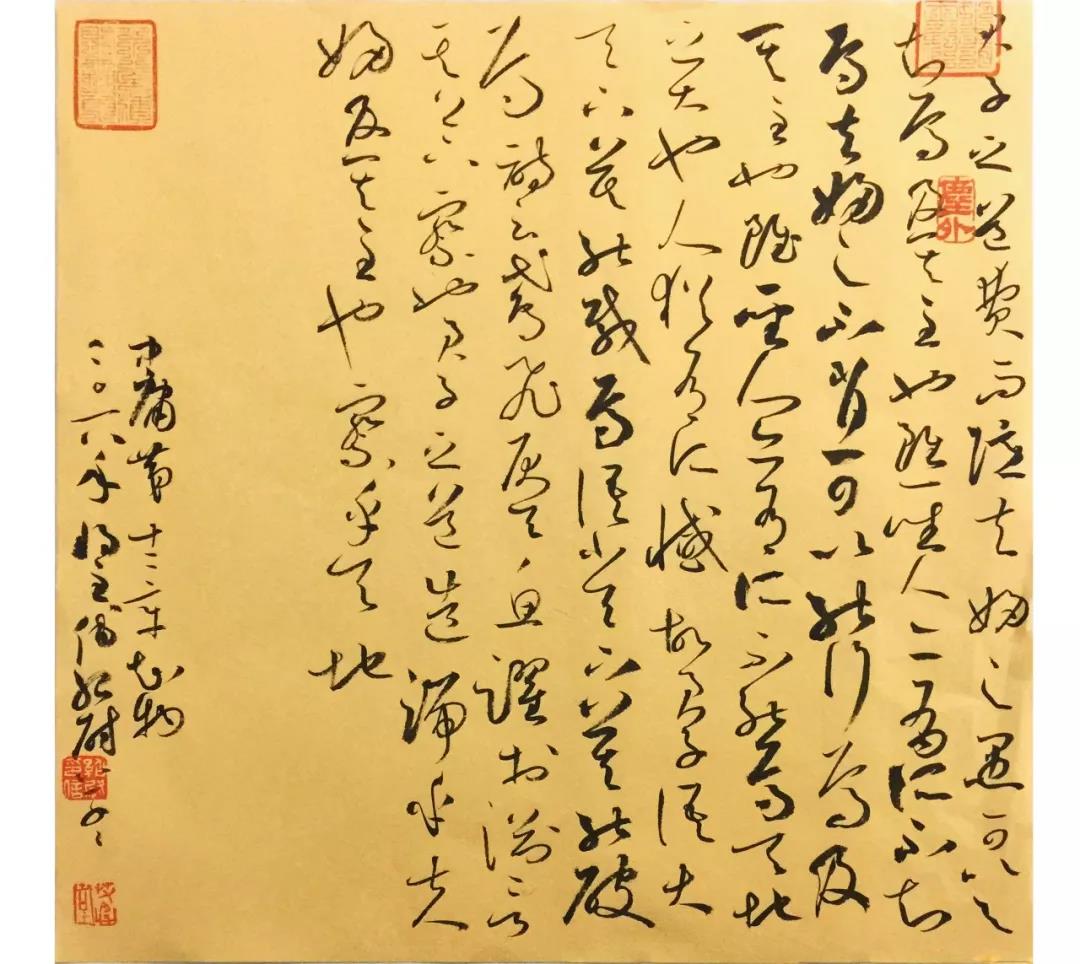 君子之道費而隱夫婦之愚可以與
知焉及其至也雖聖人亦有所不知
焉夫婦之不肖可以能行焉及
其至也雖聖人亦有所不能焉天地
之大也人猶有所憾故君子語大
天下莫能載焉語小天下莫能破
焉詩云鳶飛戾天魚躍於淵言
其上下察也君子之道造端乎夫
婦及其至也察乎天地
中庸節十二章
二〇一八年
塵外